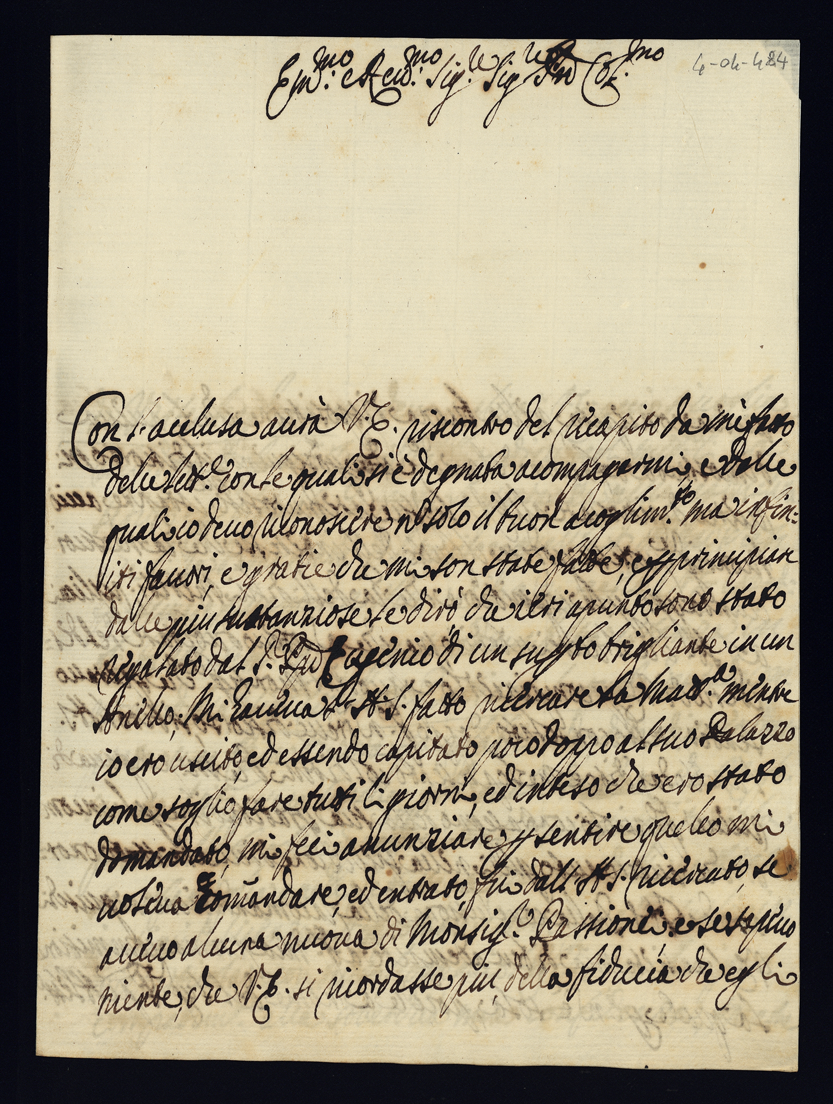 Em.mo e Rev.mo Sig.re Sig.re Pñ Col.mo
4-04-484
Con l'acclusa aurà V.E. riscontro del ricapito da me fatto
delle lett.e con le quali si è degnata acompagarmi, e dalle
quali io devo riconoscere nõ solo il buon acoglim.to ma infin=
iti favori, e gratie che mi son state fatte, e p principiar
dalle più sustanziose le dirò che ieri apunto sono stato
regalato dal S. Pñ Eugenio di un sup.bo brigliante in un
Anello. Mi haveva S. A. S. fatto ricercare la Matt.a mentre
io ero uscito, ed essendo capitato poco doppo al suo Palazzo
come soglio fare tutti li giorni, ed inteso che ero stato
domandato, mi feci anunziare p sentire quello mi
voleva comandare, ed entrato, fui dall' A. S. ricercato, se
avevo alcuna nuova di Monsig.r Passionei, e se sapevo
niente, che V.E. si ricordasse più della fiducia che egli